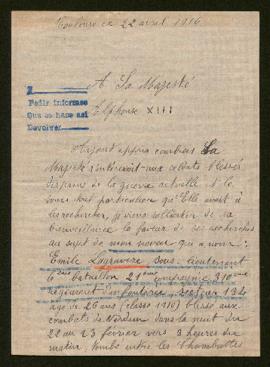 Toulouse le 22 avril 1916
A Sa Majesté
Alphonse XIII
Pedir informes
Que se hace así
Devolver
Ayant appris combien Sa
Majesté s'intéressait aux soldats blessés
disparus de la guerre actuelle et le
soin tout particulier qu'Elle avait à
les rechercher, je viens solliciter de sa
bienveillance la faveur de ses recherches
au sujet de mon neveu qui a nom:
Emile Lagravere Sous-lieutenant
bataillon 21ème compagnie
Régiment
age de 26 ans (classe 1910) blessé aux
combats de Verdun dans la nuit du
22 au 23 février vers 3 heures du
matin, tombé entre les